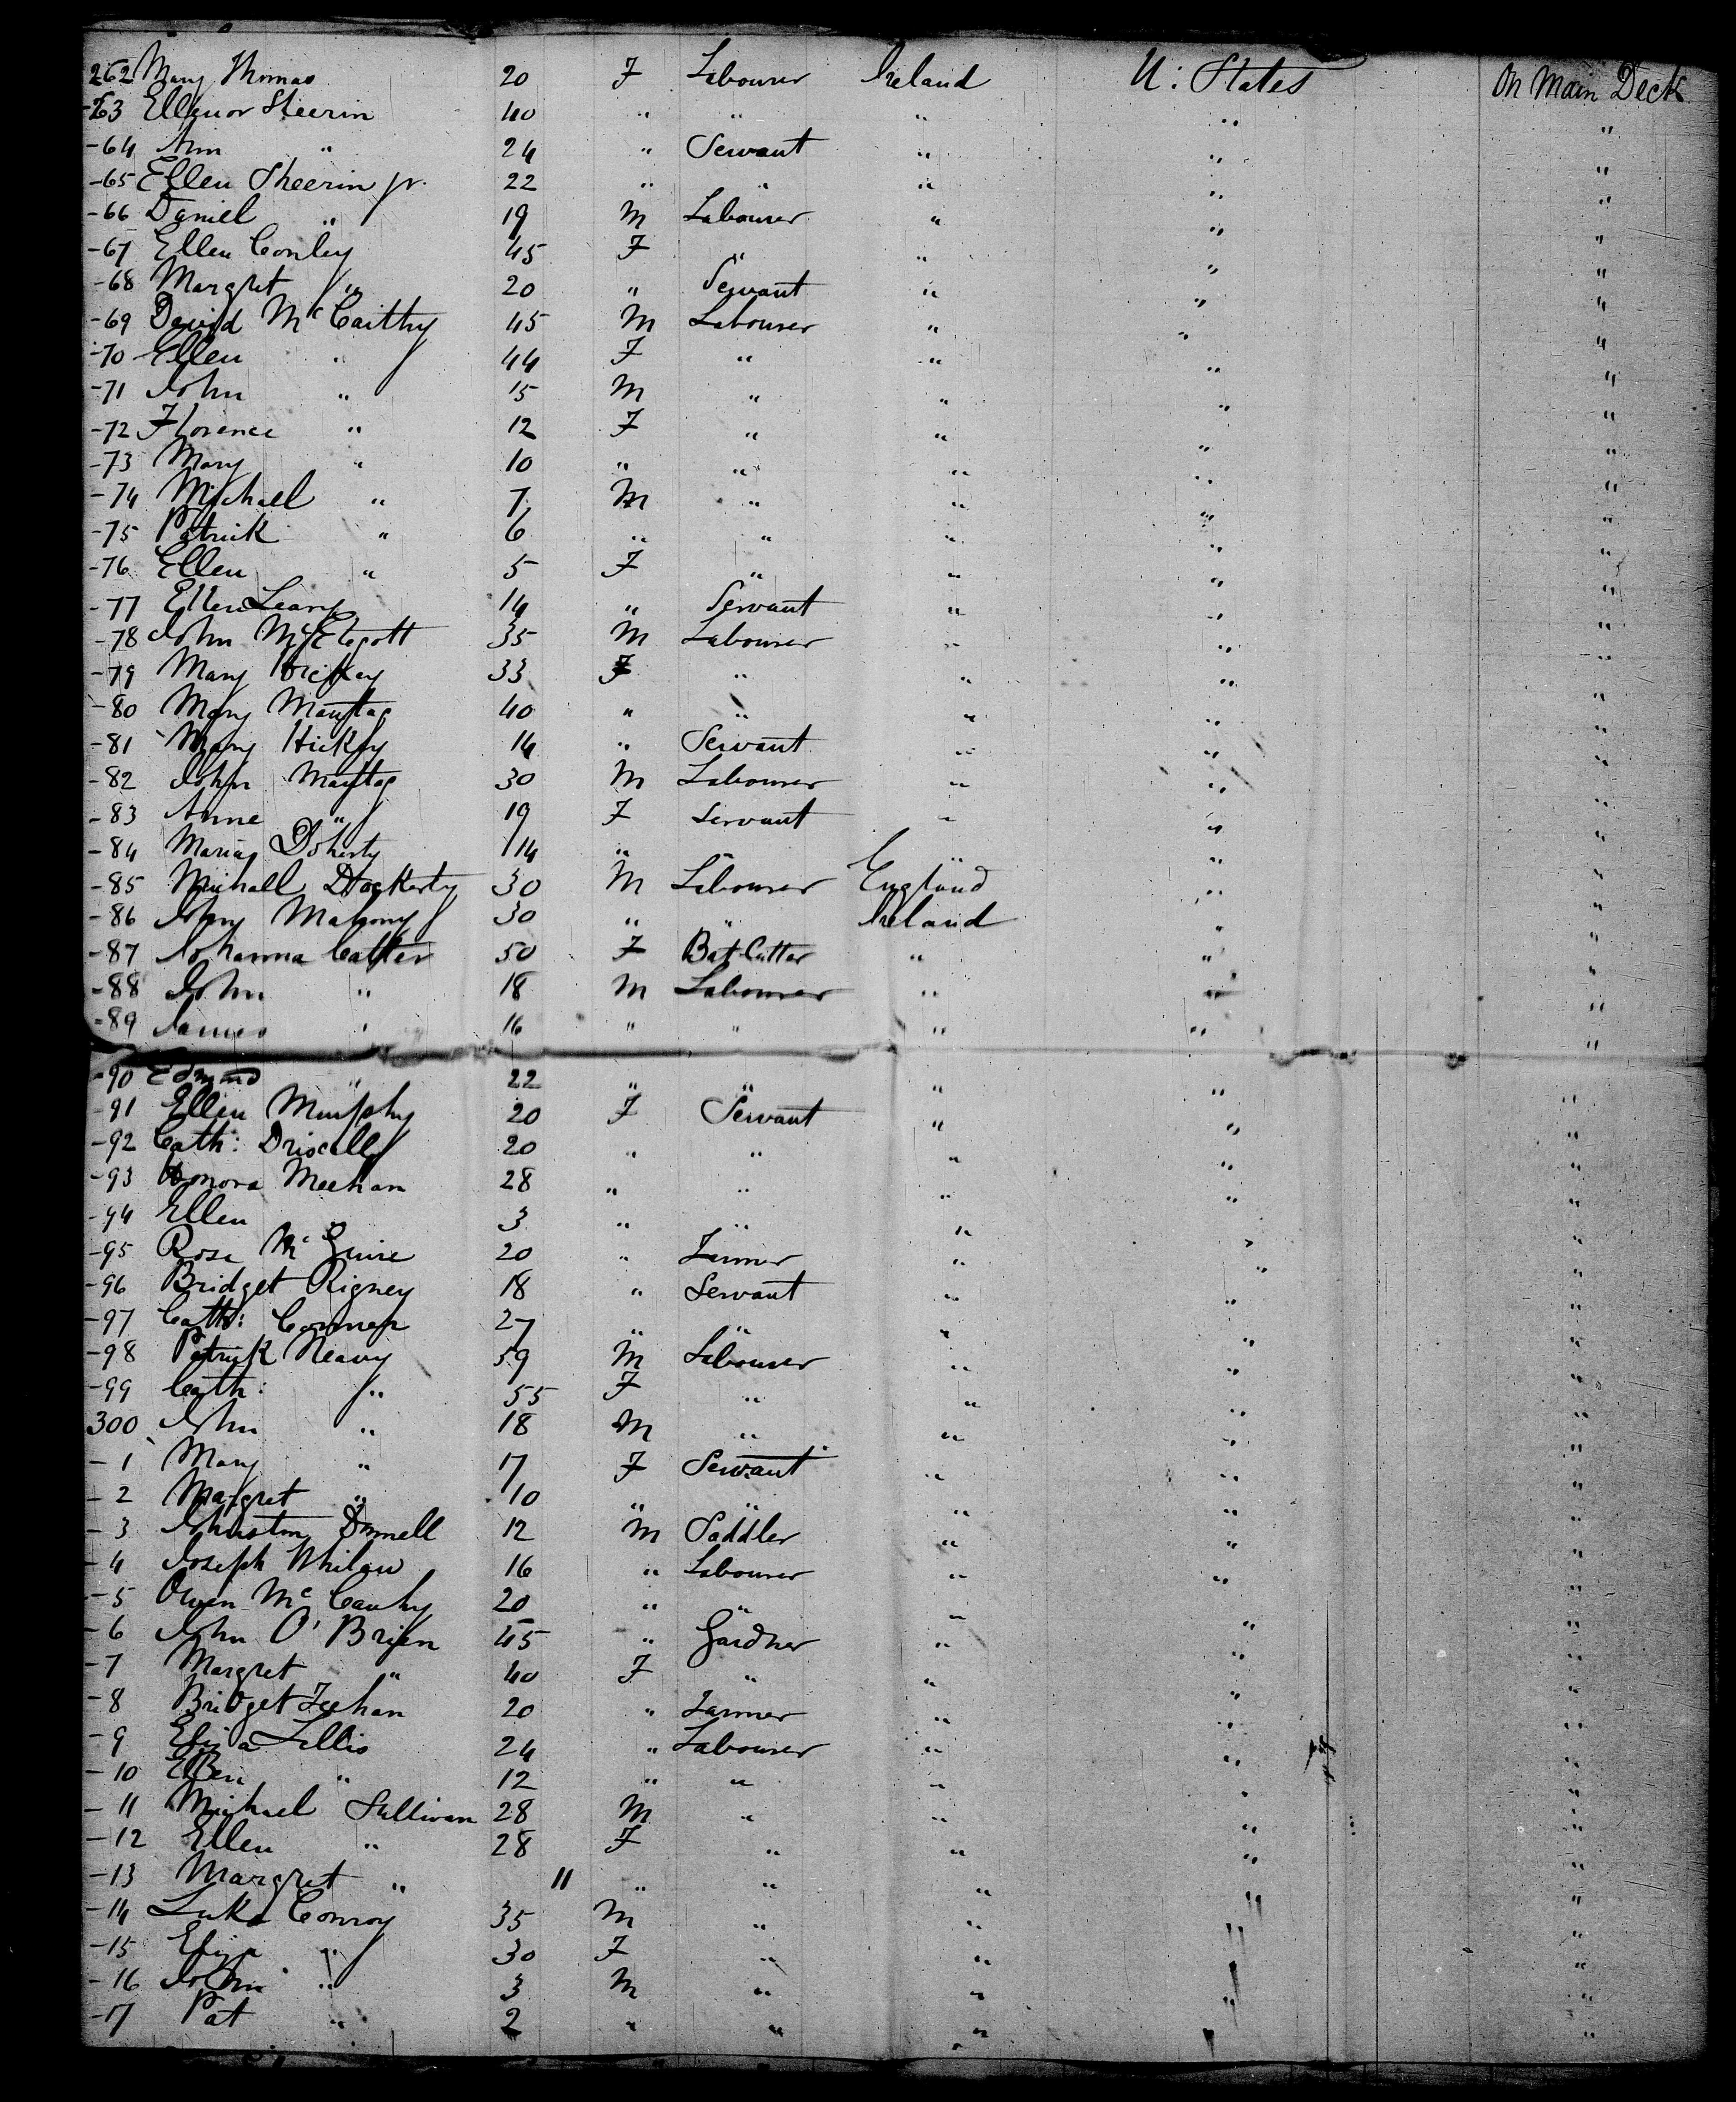 262 Mary Thomas 20 F Labourer Ireland U: States On Main Deck
-63 Ellenor Sheerin 40 " " " " "
-64 Ann " 24 " Servant " " "
-65 Ellen Sheerin jr. 22 " " " " "
-66 Daniel " 19 M Labourer " " "
-67 Ellen Conley 45 F " " " "
-68 Margret " 20 " Servant " " "
-69 David McCarthy 45 M Labourer " " "
-70 Ellen " 44 F " " " "
-71 John " 15 M " " " "
-72 Florence " 12 F " " " "
-73 Mary " 10 " " " " "
-74 Michael " 7 M " " " "
-75 Patrick " 6 " " " " "
-76 Ellen " 5 F " " " "
-77 Ellen Leary 14 " Servant " " "
-78 John 35 M Labourer " " "
-79 Mary 33 F " " " "
-80 Mary 40 " " " " "
-81 Mary Hickey 14 " Servant " " "
-82 John 30 M Labourer " " "
-83 Anne " 19 F Servant " " "
-84 Maria Doherty 14 " " " " "
-85 Michall 30 M Labourer England " "
-86 Mahony 30 " " Ireland " "
-87 Johanna 50 F " " "
-88 John " 18 M Labourer " " "
-89 James " 16 " " " " "
-90 Edmund " 22 " " " " "
-91 Ellen Murphy 20 F Servant " " "
-92 Cath: Driscoll 20 " " " " "
-93 Honora Meehan 28 " " " " "
-94 Ellen 3 " " " " "
-95 Rosa McGuire 20 " Farmer " " "
-96 Bridget Rigney 18 " Servant " " "
-97 Cath: 27 " " " " "
-98 Patrick Neavy 59 M Labourer " " "
-99 Cath: " 55 F " " " "
300 John " 18 M " " " "
-1 Mary " 17 F Servant " " "
-2 Margret " 10 " " " " "
-3 Johnston Donnell 12 M Saddler " " "
-4 Joseph 16 " Labourer " " "
-5 Owen 20 " " " " "
-6 John O'Brien 45 " Gardner " " "
-7 Margret " 40 F " " " "
-8 Bridget Feehan 20 " Farmer " " "
-9 Eliza Lillis 24 " Labourer " " "
-10 Ellen " 12 " " " " "
-11 Michael Sullivan 28 M " " " "
-12 Ellen " 28 F " " " "
-13 Margret " 11 " " " " "
-14 Luke Conroy 35 M " " " "
-15 Eliza " 30 F " " " "
-16 John " 3 M " " " "
-17 Pat " 2 " " " " "